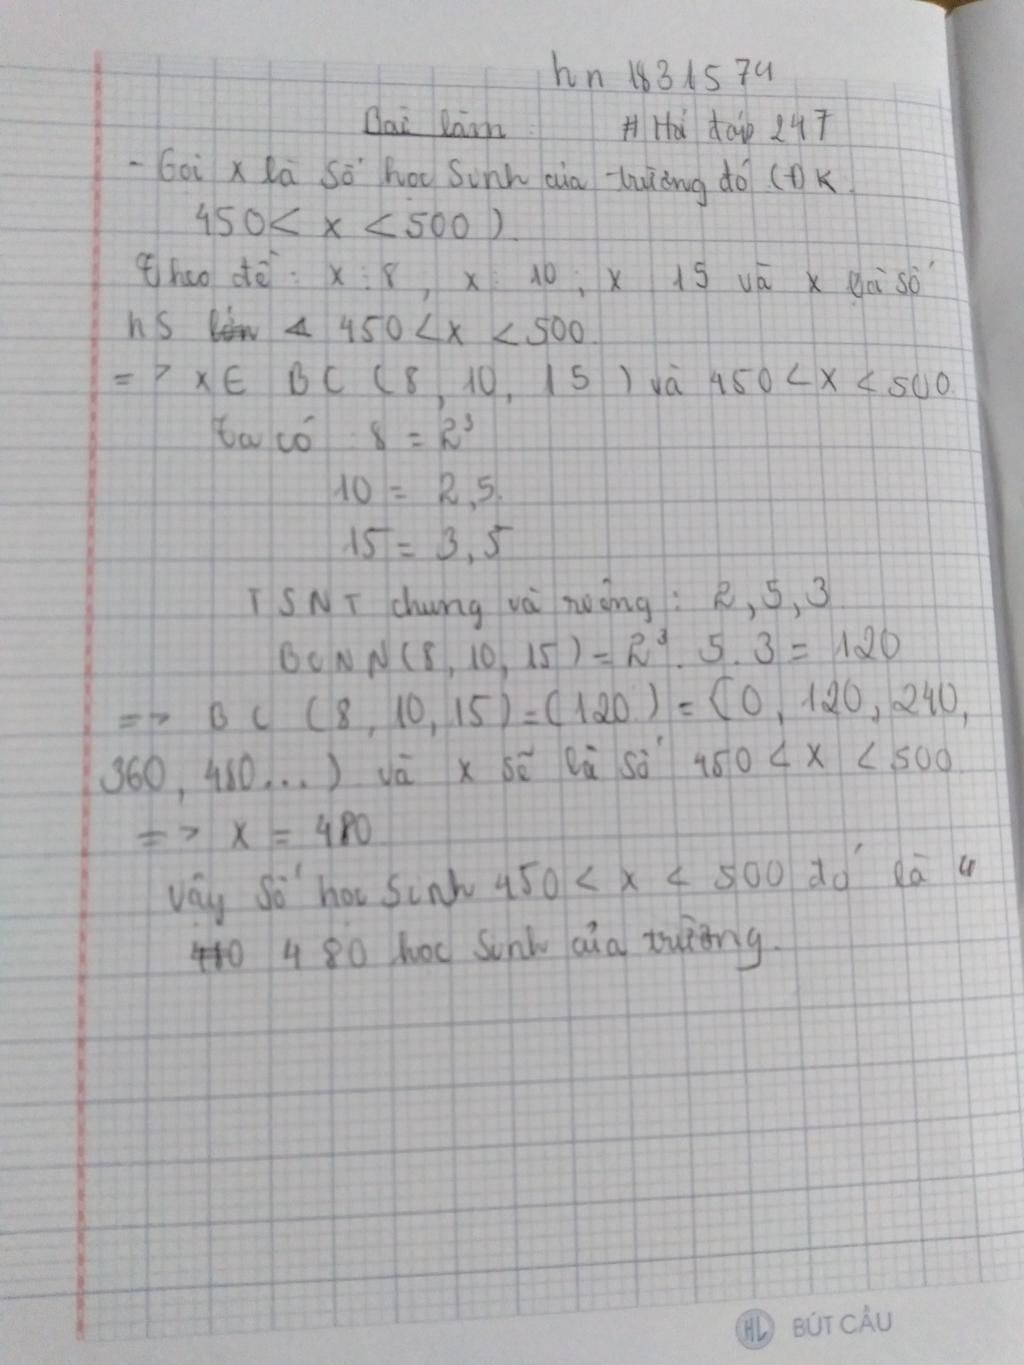 hn 1831574
Bài làm # Hỏi đáp 247
- Gọi x là số học sinh của trường đó (ĐK
450 < x < 500)
Theo đề: x : 8, x : 10, x 15 và x là số
hs lớn < 450 < x < 500
=> x ∈ BC (8, 10, 15) và 450 < x < 500
Ta có 8 = 2³
10 = 2,5
15 = 3,5
TSNT chung và riêng: 2, 5, 3
BCNN (8, 10, 15) = 2³. 5. 3 = 120
=> BC (8, 10, 15) = (120) = (0, 120, 240,
360, 480...) và x sẽ là số 450 < x < 500
=> x = 480
Vậy số học sinh 450 < x < 500 đó là 4
480 học sinh của trường.
HL BÚT CÂU